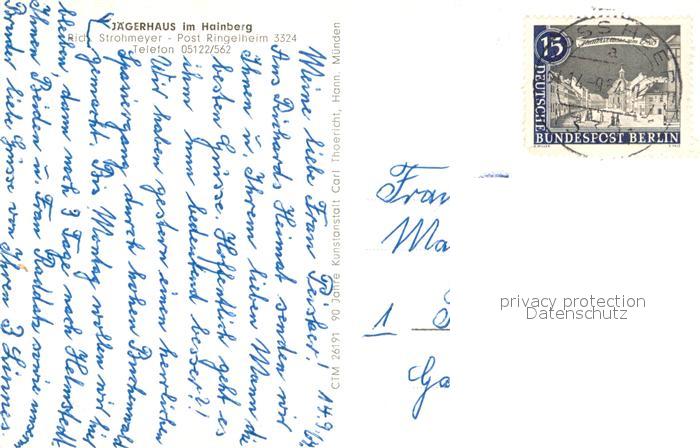 JÄGERHAUS im Hainberg
Rich. Strohmeyer - Post Ringelheim 3324
Telefon 05122/562
Meine liebe Frau Peisker! 14.9.64
Aus Richards Heimat senden wir
Ihnen u. Ihrem lieben Mann die
besten Grüsse. Hoffentlich geht es
ihm nun bedeutend besser?!
Wir haben gestern einen herrlichen
Spaziergang durch hohen Buchenwald
gemacht. Bis Montag wollen wir hier
bleiben, dann noch 3 Tage nach Helmstedt.
Ihnen Beiden u. Frau Raddatz sowie unserm
Bruder liebe Grüsse von Ihren 3 Linnes
CTM 26191 90 Jahre Kunstanstalt Carl Thoericht, Hann. Münden
15
DEUTSCHE
BUNDESPOST BERLIN
Frau
Ma
1
Ga
privacy protection
Datenschutz